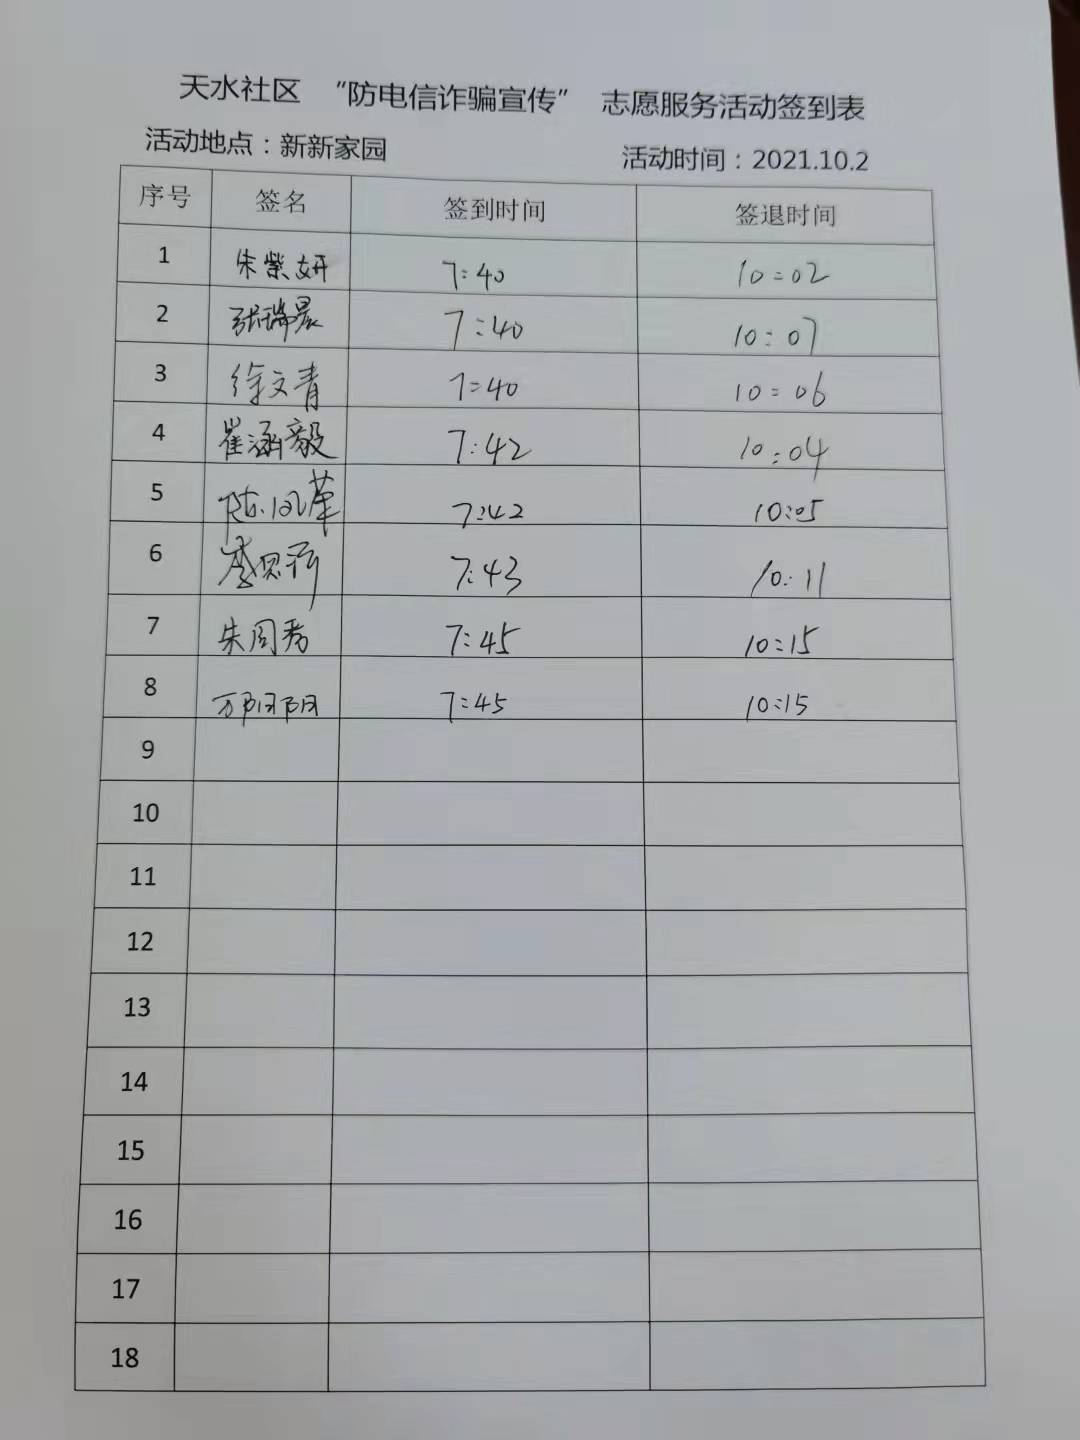 天水社区 “防电信诈骗宣传” 志愿服务活动签到表
活动地点：新新家园 活动时间：2021.10.2
序号 签名 签到时间 签退时间
1 朱紫妍 7:40 10:02
2 张瑞晨 7:40 10:07
3 徐文青 7:40 10:06
4 崔涵毅 7:42 10:04
5 7:42 10:05
6 7:43 10:11
7 朱周 7:45 10:15
8 万阳阳 7:45 10:15
9
10
11
12
13
14
15
16
17
18